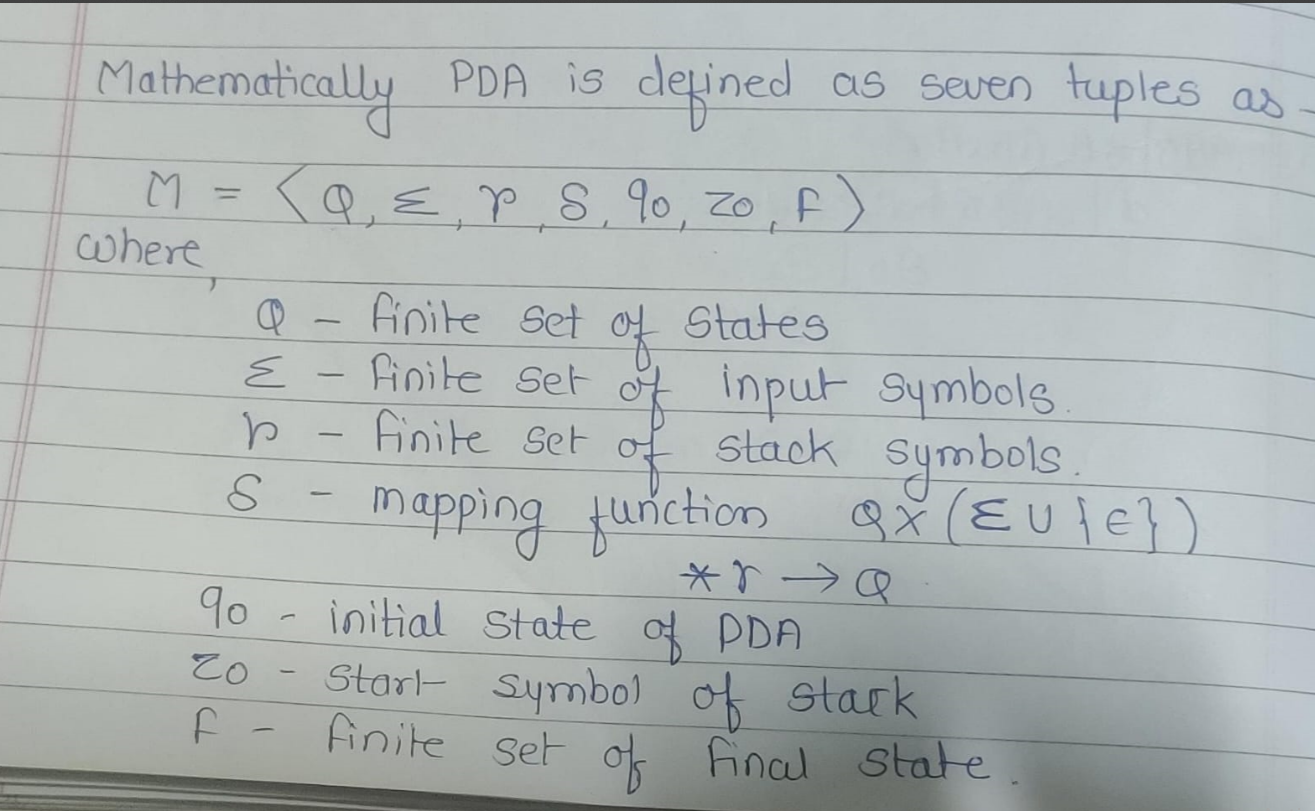 Mathematically PDA is defined as seven tuples as -
M = ⟨Q, Σ, r, δ, q0, z0, F⟩
where,
Q - finite set of states
Σ - finite set of input symbols.
r - finite set of stack symbols.
δ - mapping function Q×(Σ∪{∈})
*r → Q
q0 - initial state of PDA
z0 - start symbol of stack
F - finite set of final state.